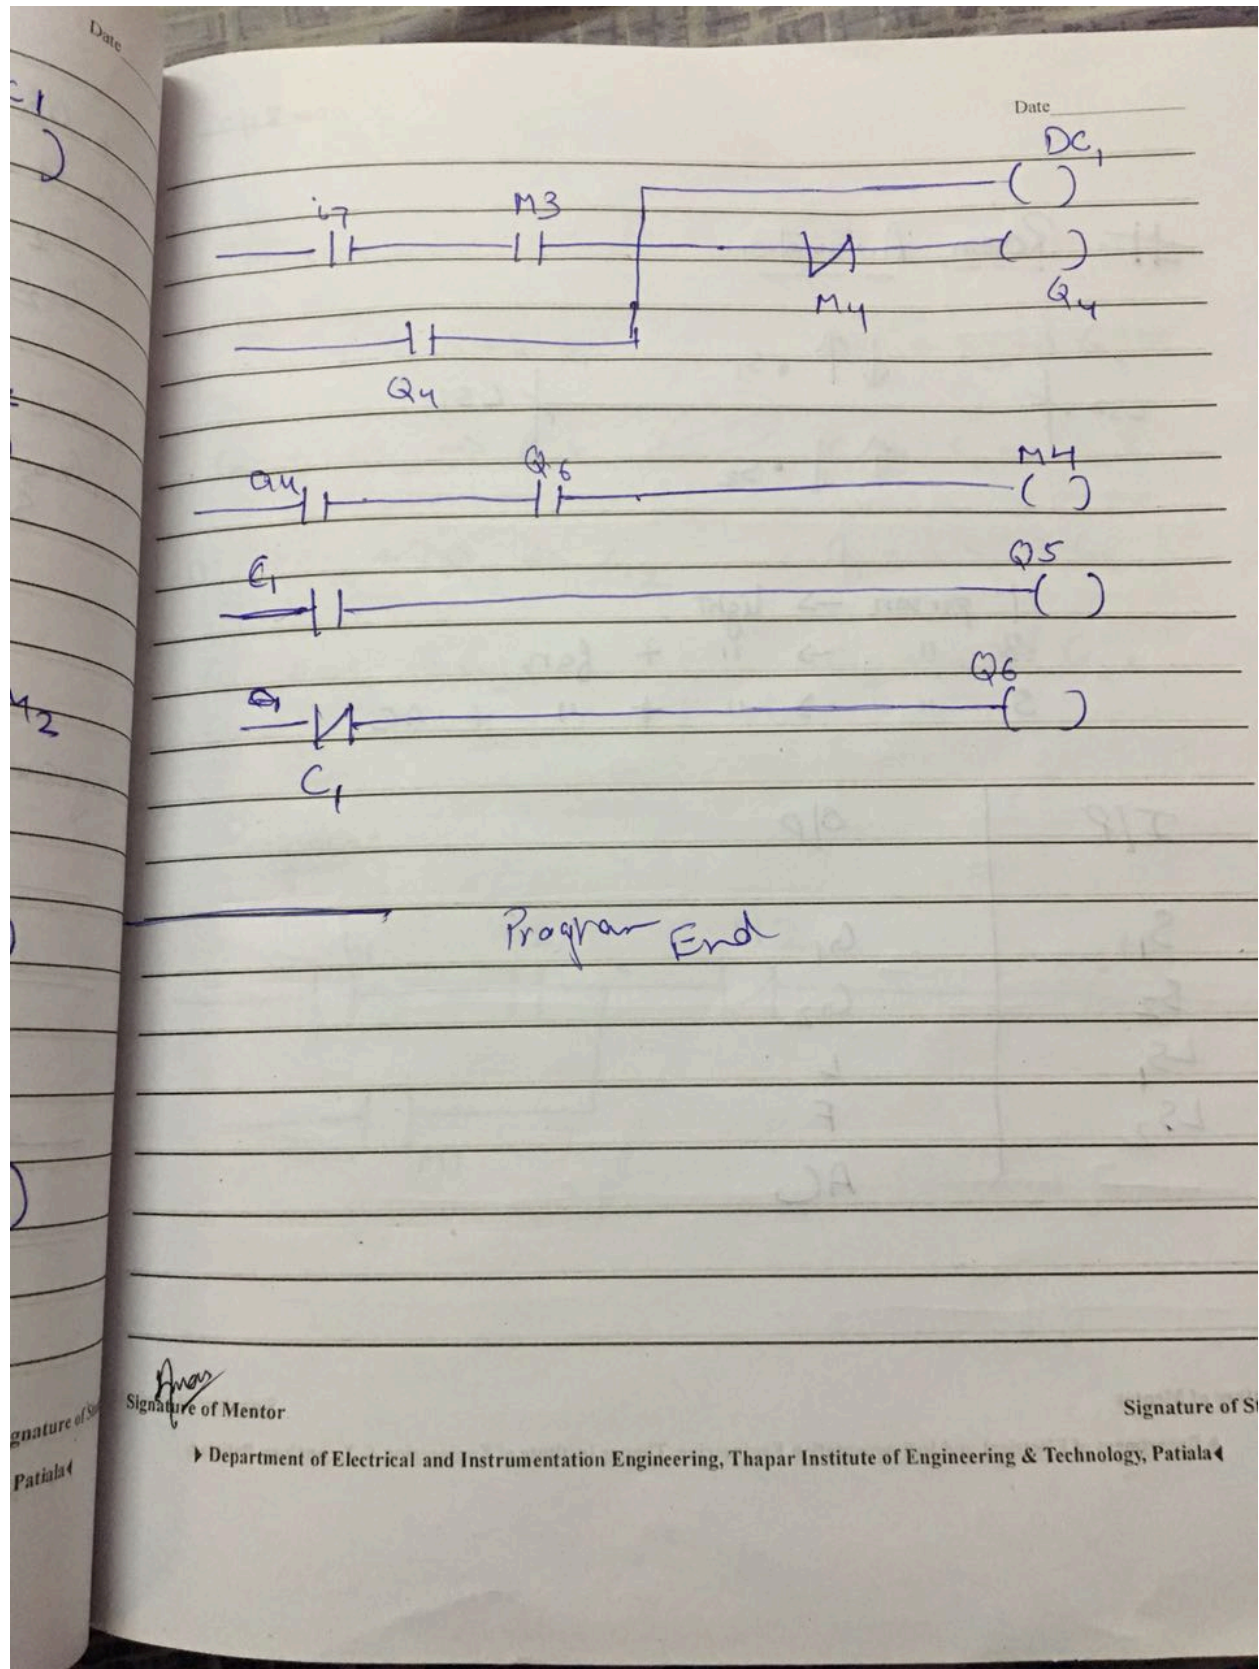 Date
Date
DC1
i7 M3
M4 Q4
Q4
Q4 Q6 M4
C1 Q5
Q6
C1
Program End
Signature of Mentor
Signature of St
Department of Electrical and Instrumentation Engineering, Thapar Institute of Engineering & Technology, Patiala
gnature of
Patiala